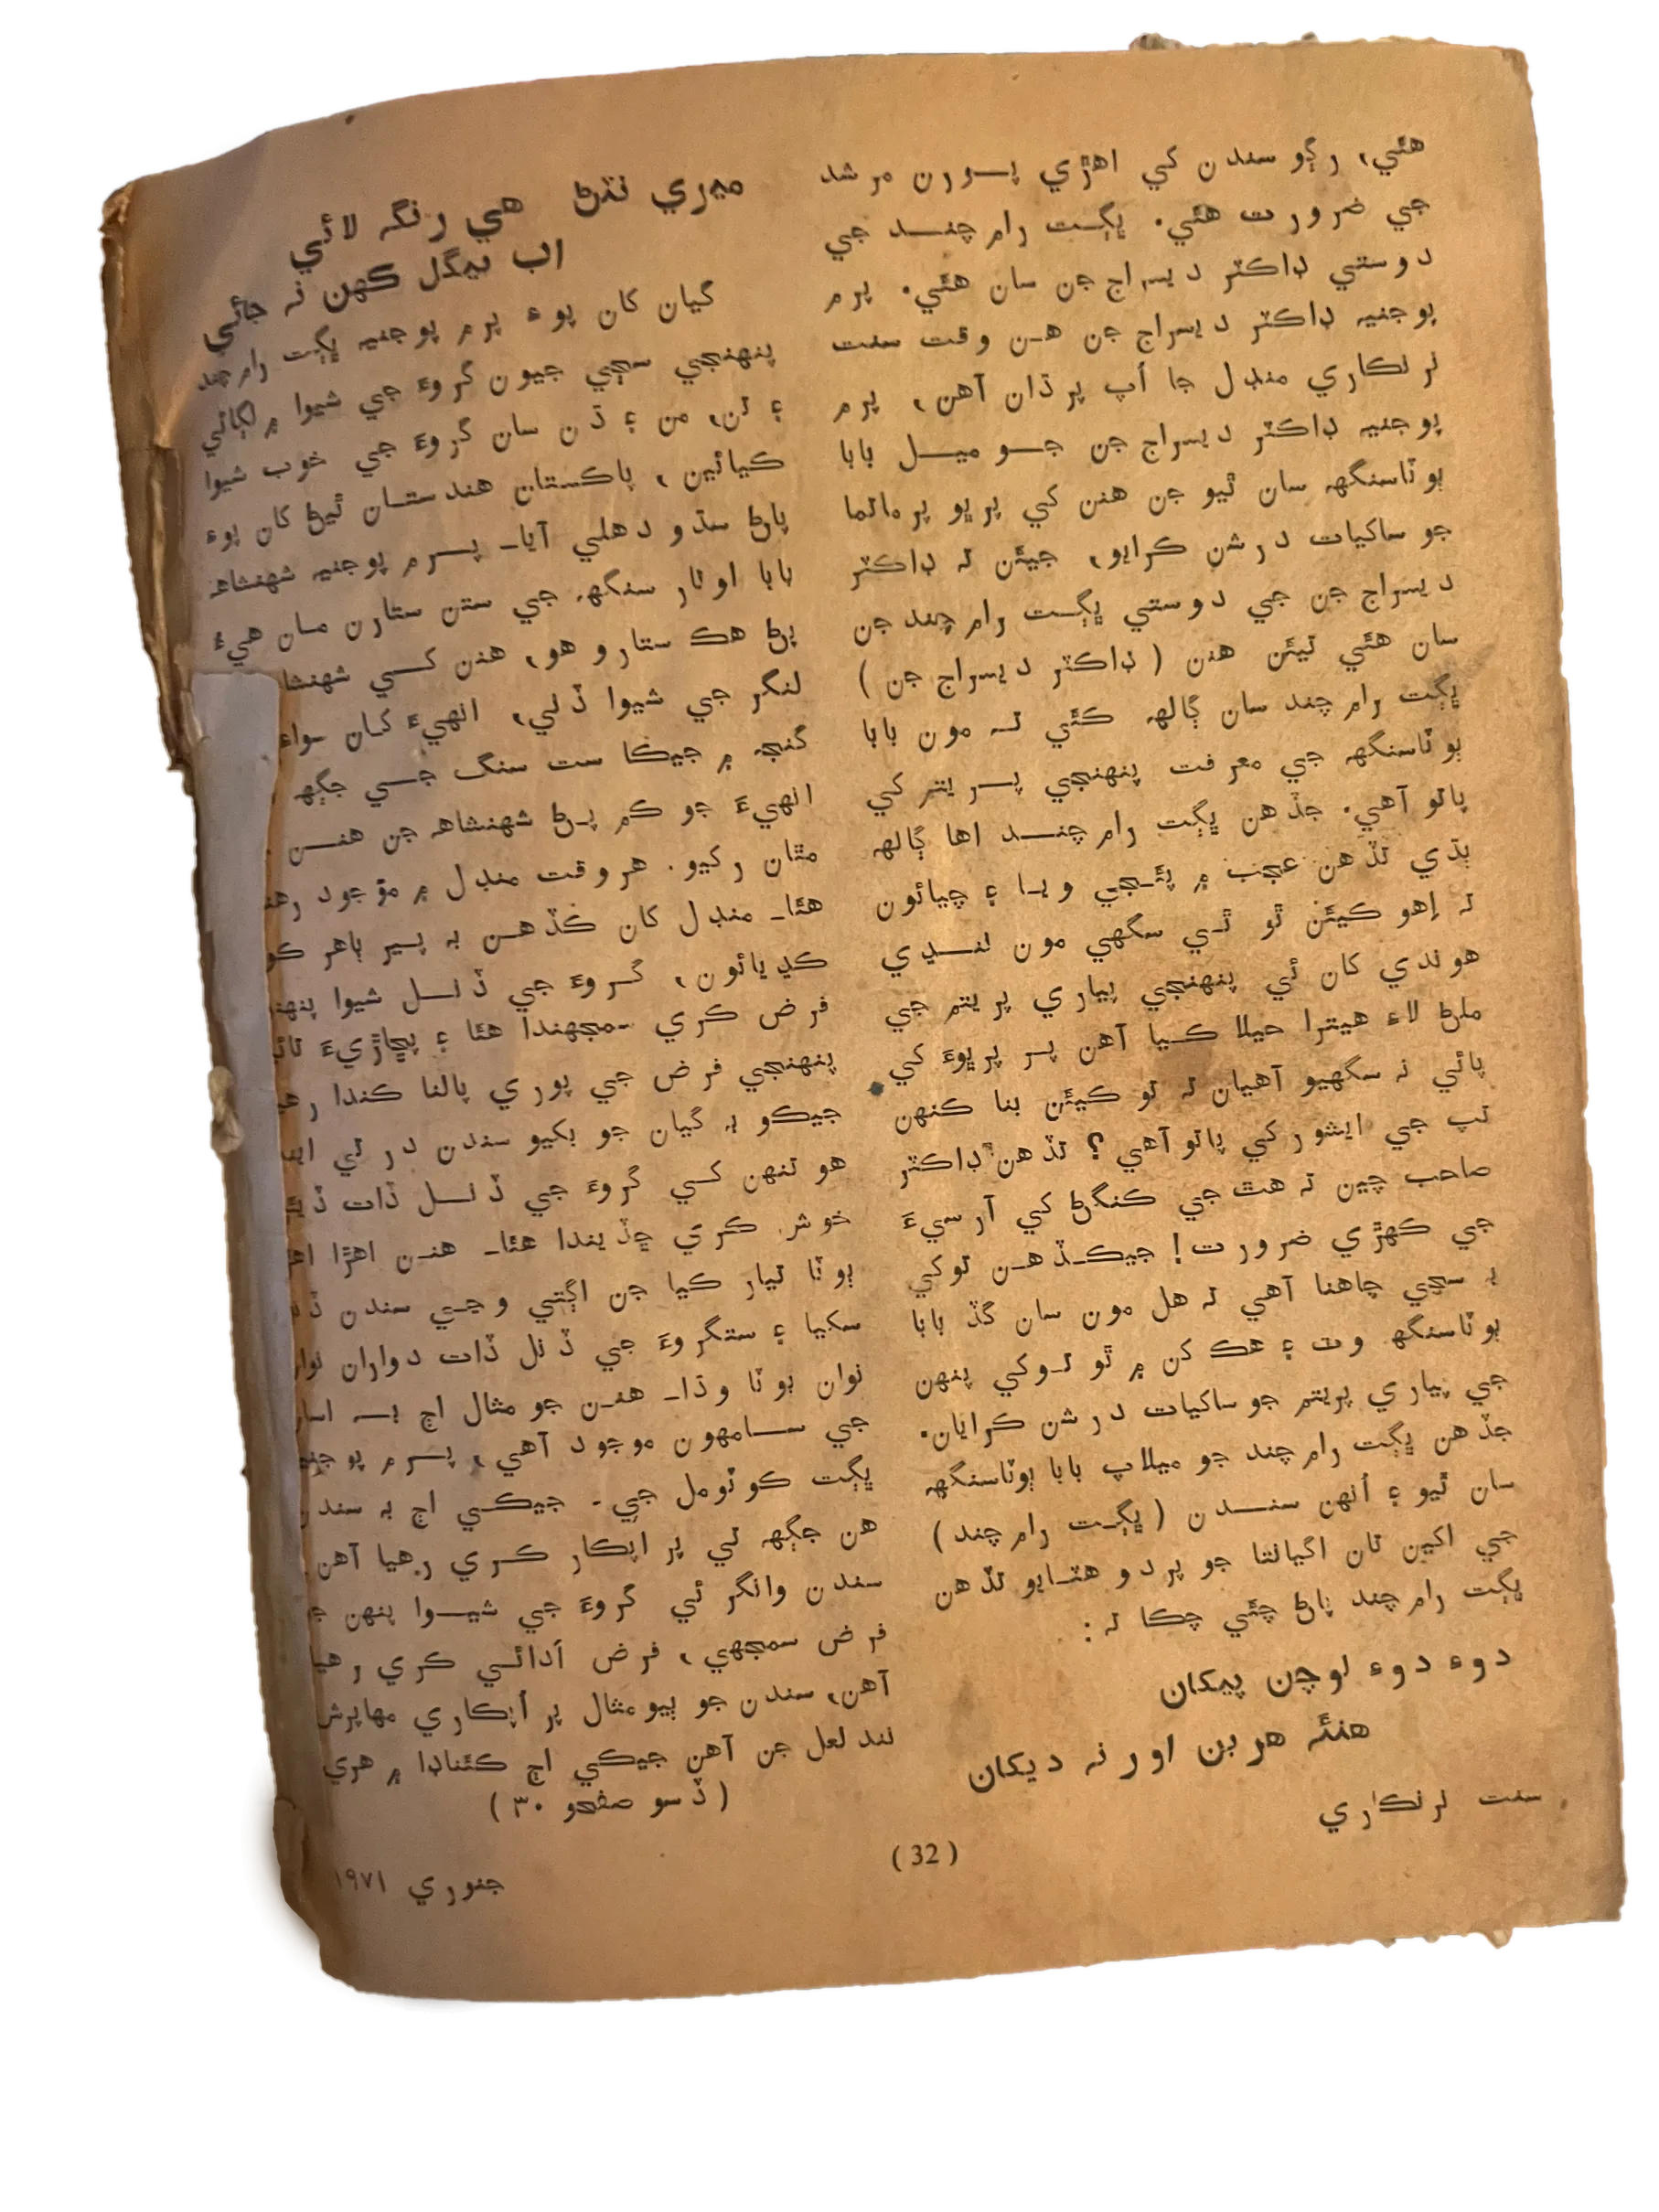 هئي، رڳو سندن کي اهڙي پورن مرشد
جي ضرورت هئي. ڀڳت رام چند جي
دوستي ڊاڪٽر ديسراج جن سان هئي. پرم
پوجنيہ ڊاڪٽر ديسراج جن هن وقت سنت
نرنڪاري منڊل جا اُپ پرڌان آهن، پرم
پوجنيہ ڊاڪٽر ديسراج جن جو ميل بابا
ٻوٽاسنگهہ سان ٿيو جن هنن کي پرڀو پرماتما
جو ساکيات درشن ڪرايو، جيئن تہ ڊاڪٽر
ديسراج جن جي دوستي ڀڳت رام چند جن
سان هئي تيئن هنن (ڊاڪٽر ديسراج جن)
ڀڳت رام چند سان ڳالهہ ڪئي تہ مون بابا
ٻوٽاسنگهہ جي معرفت پنهنجي پريتم کي
پاتو آهي. جڏهن ڀڳت رام چند اها ڳالهہ
ٻڌي تڏهن عجب ۾ پئجي ويا ۽ چيائون
تہ اِهو ڪيئن ٿو ٿي سگهي مون ننڍي
هوندي کان ئي پنهنجي پياري پريتم جي
ملڻ لاءِ هيترا حيلا ڪيا آهن پر پرڀوءَ کي
پائي نہ سگهيو آهيان تہ تو ڪيئن بنا ڪنهن
تپ جي ايشور کي پاتو آهي؟ تڏهن ڊاڪٽر
صاحب چين تہ هٿ جي ڪنگڻ کي آرسيءَ
جي ڪهڙي ضرورت! جيڪڏهن توکي
بہ سچي چاهنا آهي تہ هل مون سان گڏ بابا
ٻوٽاسنگهہ وٽ ۽ هڪ کن ۾ ٿو توکي پنهن
جي پياري پريتم جو ساکيات درشن ڪرايان.
جڏهن ڀڳت رام چند جو ميلاپ بابا ٻوٽاسنگهہ
سان ٿيو ۽ اُنهن سندن (ڀڳت رام چند)
جي اکين تان اگيانتا جو پردو هٽايو تڏهن
ڀڳت رام چند پاڻ چئي چڪا تہ:
دوءِ دوءِ لوچن پيکان
هنئہ هر بن اور نہ ديکان
سنت نرنڪاري
ميري نئڻ هي رنگہ لائي
اب ٻيگل ڪهن نہ جائي
گيان کان پوءِ پرم پوجنيہ ڀڳت رام چند
پنهنجي سڄي جيون گروءَ جي شيوا ۾ لڳائي
۽ تن، من ۽ ڌن سان گروءَ جي خوب شيوا
ڪيائين، پاڪستان هندستان ٿيڻ کان پوءِ
پاڻ سڌو دهلي آيا۔ پرم پوجنيہ شهنشاهہ
بابا اوتار سنگهہ جي ستن ستارن مان هيءَ
پڻ هڪ ستارو هو، هنن کي
لنگر جي شيوا ڏني، انهيءَ کان سواءِ
گنجہ ۾ جيڪا ست سنگ جي جڳهہ
انهيءَ جو ڪم پڻ شهنشاهہ جن هنن
مٿان رکيو. هر وقت منڊل ۾ موجود
هئا۔ منڊل کان ڪڏهن بہ پير ٻاهر
ڪڍيائون، گروءَ جي ڏنل شيوا
فرض ڪري سمجهندا هئا ۽ پڇاڙيءَ
پنهنجي فرض جي پوري پالنا ڪندا
جيڪو بہ گيان جو بکيو سندن در تي
هو تنهن کي گروءَ جي ڏنل ڏات
خوش ڪري ڇڏيندا هئا۔ هنن اهڙا
ٻوٽا تيار ڪيا جن اڳتي وڃي سندن
سکيا ۽ ستگروءَ جي ڏنل ڏات دواران
نوان ٻوٽا وڌا۔ هنن جو مثال اڄ بہ
جي سامهون موجود آهي، پرم
ڀڳت ڪوٽومل جي۔ جيڪي اڄ بہ
هن جڳهہ تي پر اپڪار ڪري رهيا آهن
سندن وانگر ئي گروءَ جي شيوا پنهن
فرض سمجهي، فرض اَدائي ڪري
آهن، سندن جو ٻيو مثال پر اُپڪاري مهاپرش
نند لعل جن آهن جيڪي اڄ ڪئناڊا ۾ هري
(ڏسو صفحو ٣٠)
(32)
جنوري ١٩٧١